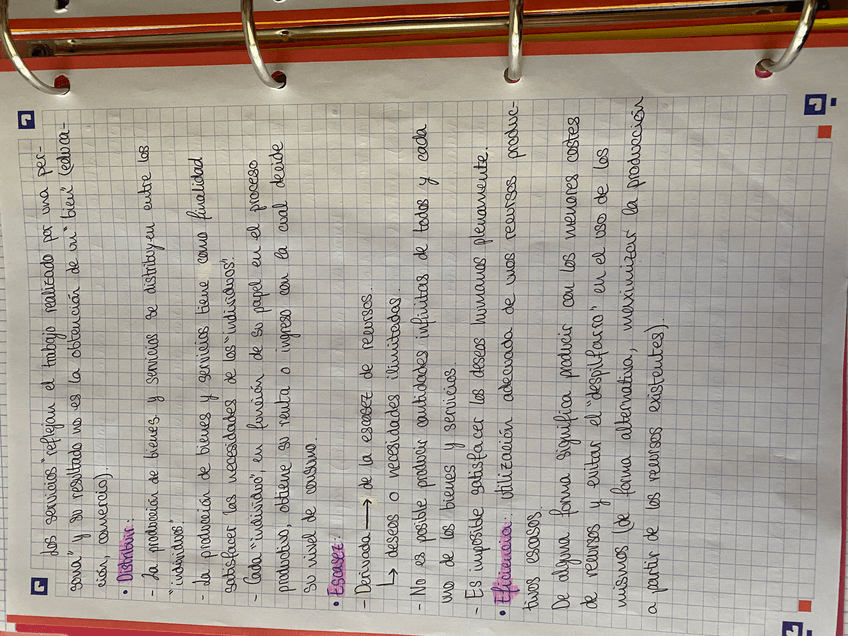 Los servicios "reflejan el trabajo realizado por una per-
sona" y su resultado no es la obtención de un "bien" (educa-
ción, comercio).
• Distribuir:
- La producción de bienes y servicios se distribuyen entre los
"individuos".
- La producción de bienes y servicios tiene como finalidad
satisfacer las necesidades de los "individuos".
- Cada "individuo", en función de su papel en el proceso
productivo, obtiene su renta o ingreso con la cual decide
su nivel de consumo.
• Escasez:
- Derivada → de la escasez de recursos.
↳ deseos o necesidades ilimitadas.
- No es posible producir cantidades infinitas de todos y cada
uno de los bienes y servicios.
- Es imposible satisfacer los deseos humanos plenamente.
• Eficiencia: utilización adecuada de unos recursos produc-
tivos escasos.
De alguna forma significa producir con los menores costes
de recursos y evitar el "despilfarro" en el uso de los
mismos (de forma alternativa, maximizar la producción
a partir de los recursos existentes).